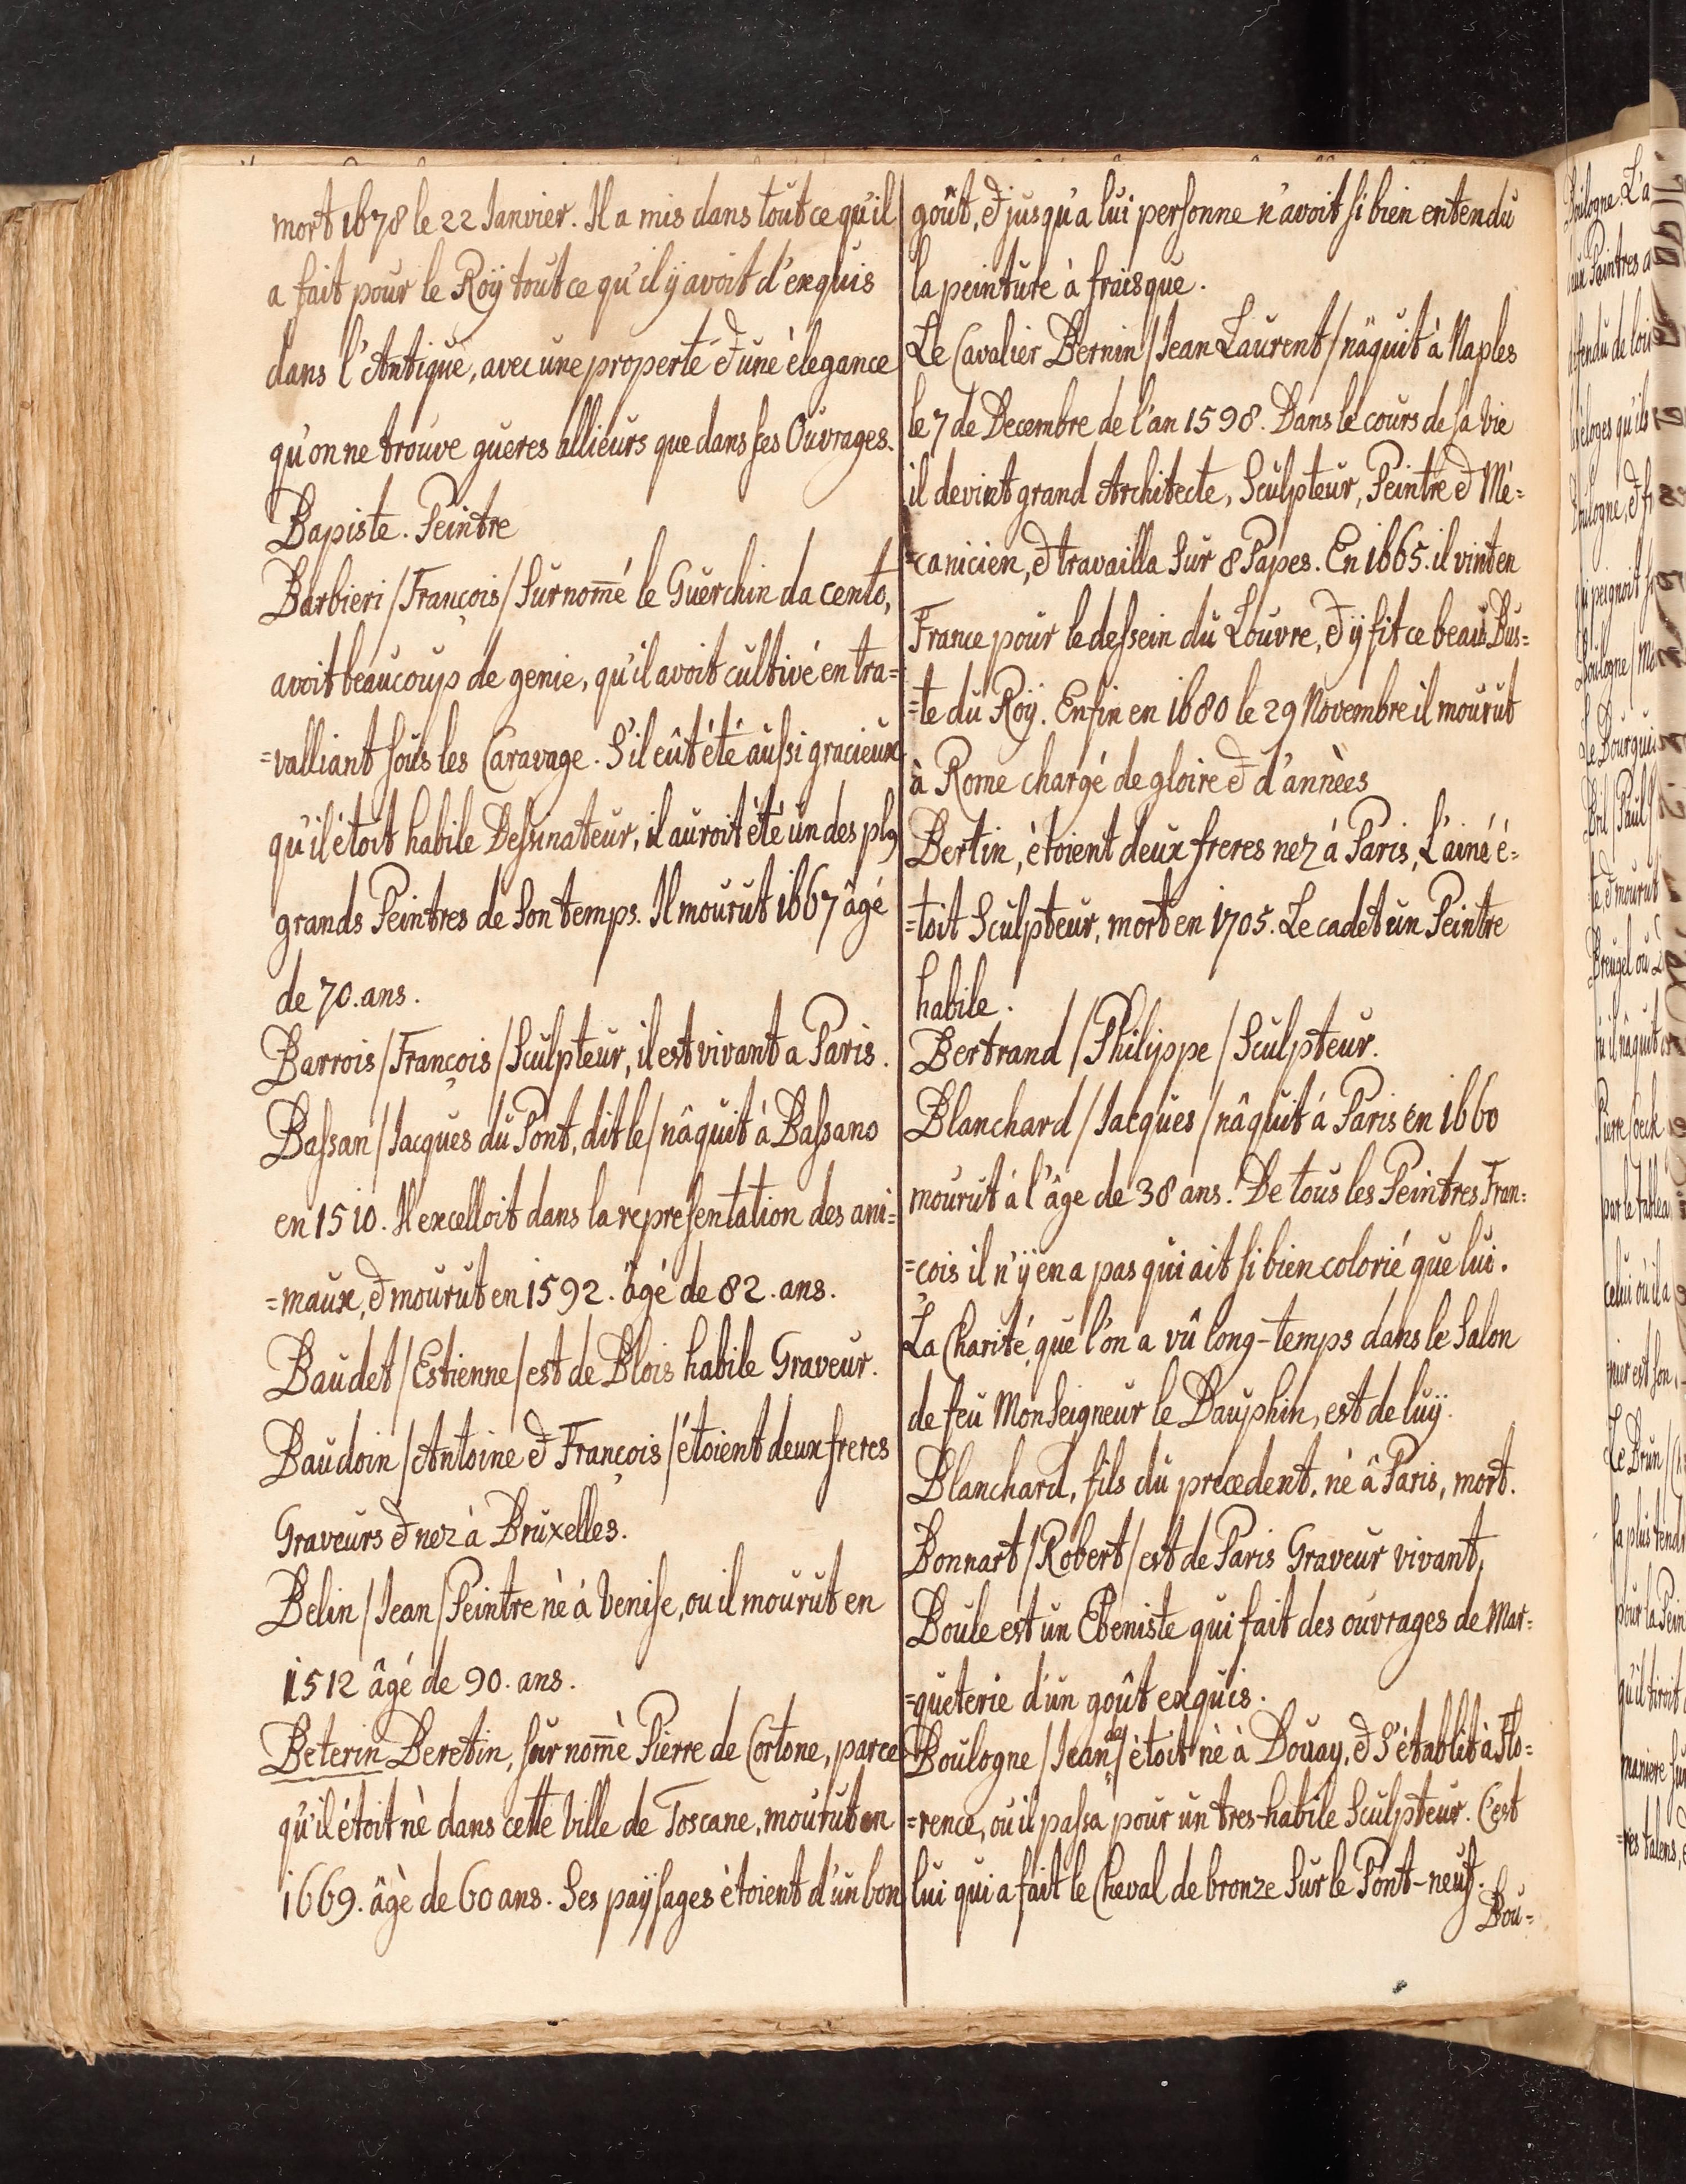 mort 1678 le 22 Janvier. Il a mis dans tout ce qu'il
a fait pour le Roÿ tout ce qu'il ÿ avoit d'exquis
dans l'Antique, avec une properté & une èlegance
qu'on ne trouve gueres allieurs que dans ses Ouvrages.
Bapiste. Peintre
Barbieri / François / Surnom̄é le Guerchin da cento,
avoit beaucoup de genie, qu'il avoit cultivé en tra=
=valliant sous les Caravage. S'il eût été aussi gracieux
qu'il étoit habile Dessinateur, il auroit été un des pl9
grands Peintres de Son temps. Il mourut 1667 âgé
de 70. ans.
Barrois / François / Sculpteur, il est vivant a Paris.
Bassan / Jacques du Pont, dit le / nâquit à Bassano
en 1510. Il excelloit dans la representation des ani=
=maux, & mourut en 1592. âgé de 82. ans.
Baudet / Estienne / est de Blois habile Graveur.
Baudoin / Antoine & François / étoient deux freres
Graveurs & nez à Bruxelles.
Belin / Jean / Peintre nè á Venise, ou il mourut en
1512 âgé de 90. ans.
Beterin Beretin, surnom̄è Pierre de Cortone, parce
qu'il étoit nè dans cette Ville de Toscane, mourut en
1669. âgè de 60 ans. Ses paÿsages ètoient d'un bon
goût, & jusqu'a lui personne n'avoit si bien entendu
la peinture à fraisque.
Le Cavalier Bernin / Jean Laurent / nâquit à Naples
le 7 de Decembre de l'an 1598. Dans le cours de sa vie
il devint grand Architecte, Sculpteur, Peintre & Mé=
=canicien, & travailla Sur 8 Papes. En 1665. il vint en
France pour le dessein du Louvre, & ÿ fit ce beau Bus=
=te du Roÿ. Enfin en 1680 le 29 Novembre il mourut
à Rome chargé de gloire & d'annèes
Bertin, ètoient deux freres nez á Paris, L'ainé é=
=toit Sculpteur, mort en 1705. Le cadet un Peintre
habile.
Bertrand / Philippe / Sculpteur.
Blanchard / Jacques / nâquit á Paris en 1660
mourut á l'âge de 38 ans. De tous les Peintres Fran=
=cois il n'ÿ en a pas qui ait si bien colorié que lui.
La Charité, que l'on a vû long-temps dans le Salon
de feu MonSeigneur le Dauphin, est de luÿ.
Blanchard, fils du precedent, nè â Paris, mort.
Bonnart / Robert / est de Paris Graveur vivant,
Boule est un Ebeniste qui fait des ouvrages de Mar=
=queterie d'un goût exquis.
Boulogne / Jean de / ètoit nè à Douay, & S'établit à Flo=
=rence, ou il passa pour un tres-habile Sculpteur. C'est
lui qui a fait le Cheval de bronze Sur le Pont-neuf.
Bou=